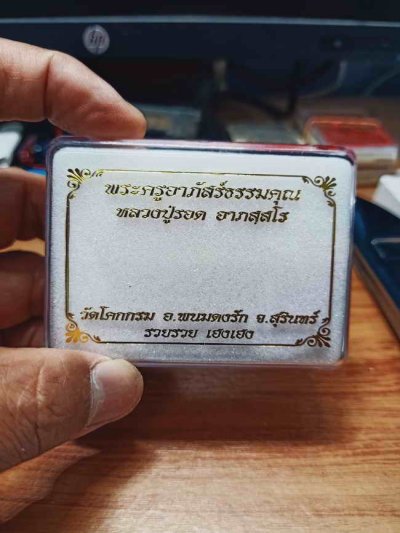 hp
พระครูอาภัสร์ธรรมคุณ
หลวงปู่รอด อาภสฺสโร
วัดโคกกรม อ.พนมดงรัก จ.สุรินทร์
รวยรวย เฮงเฮง